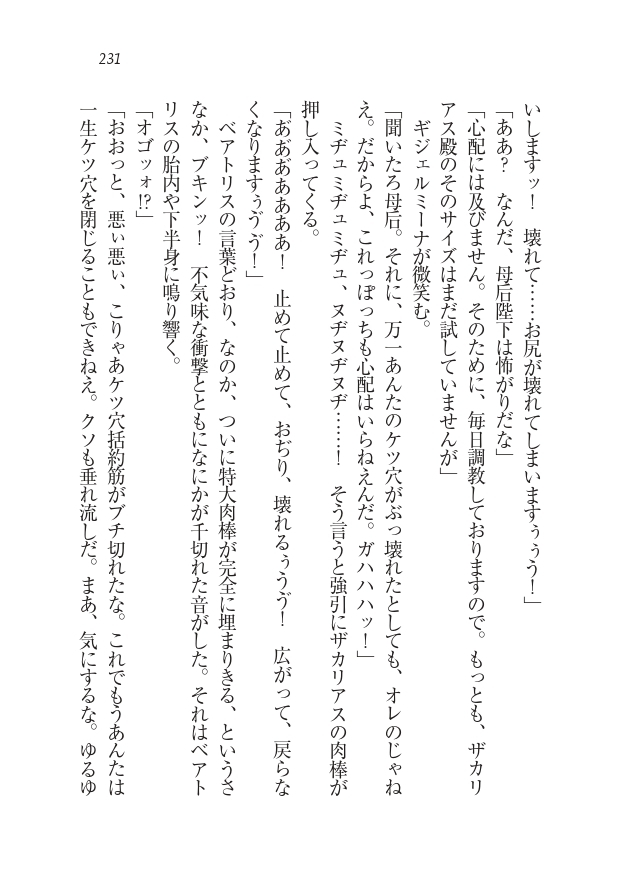 231
いしますッ！　壊れて……お尻が壊れてしまいますぅぅう！」
「ああ？　なんだ、母后陛下は怖がりだな」
「心配には及びません。そのために、毎日調教しておりますので。もっとも、ザカリ
アス殿のそのサイズはまだ試していませんが」
ギジェルミーナが微笑む。
「聞いたろ母后。それに、万一あんたのケツ穴がぶっ壊れたとしても、オレのじゃね
え。だからよ、これっぽっちも心配はいらねえんだ。ガハハハッ！」
ミヂュミヂュミヂュ、ヌヂヌヂヌヂ……！　そう言うと強引にザカリアスの肉棒が
押し入ってくる。
「あ゛あ゛あ゛ああああ！　止めて止めて、おぢり、壊れるぅうゔ！　広がって、戻らな
くなりますぅゔゔ！」
ベアトリスの言葉どおり、なのか、ついに特大肉棒が完全に埋まりきる、というさ
なか、ブキンッ！　不気味な衝撃とともになにかが千切れた音がした。それはベアト
リスの胎内や下半身に鳴り響く。
「オゴッォ!?」
「おおっと、悪ぃ悪ぃ、こりゃあケツ穴括約筋がブチ切れたな。これでもうあんたは
一生ケツ穴を閉じることもできねえ。クソも垂れ流しだ。まあ、気にするな。ゆるゆ